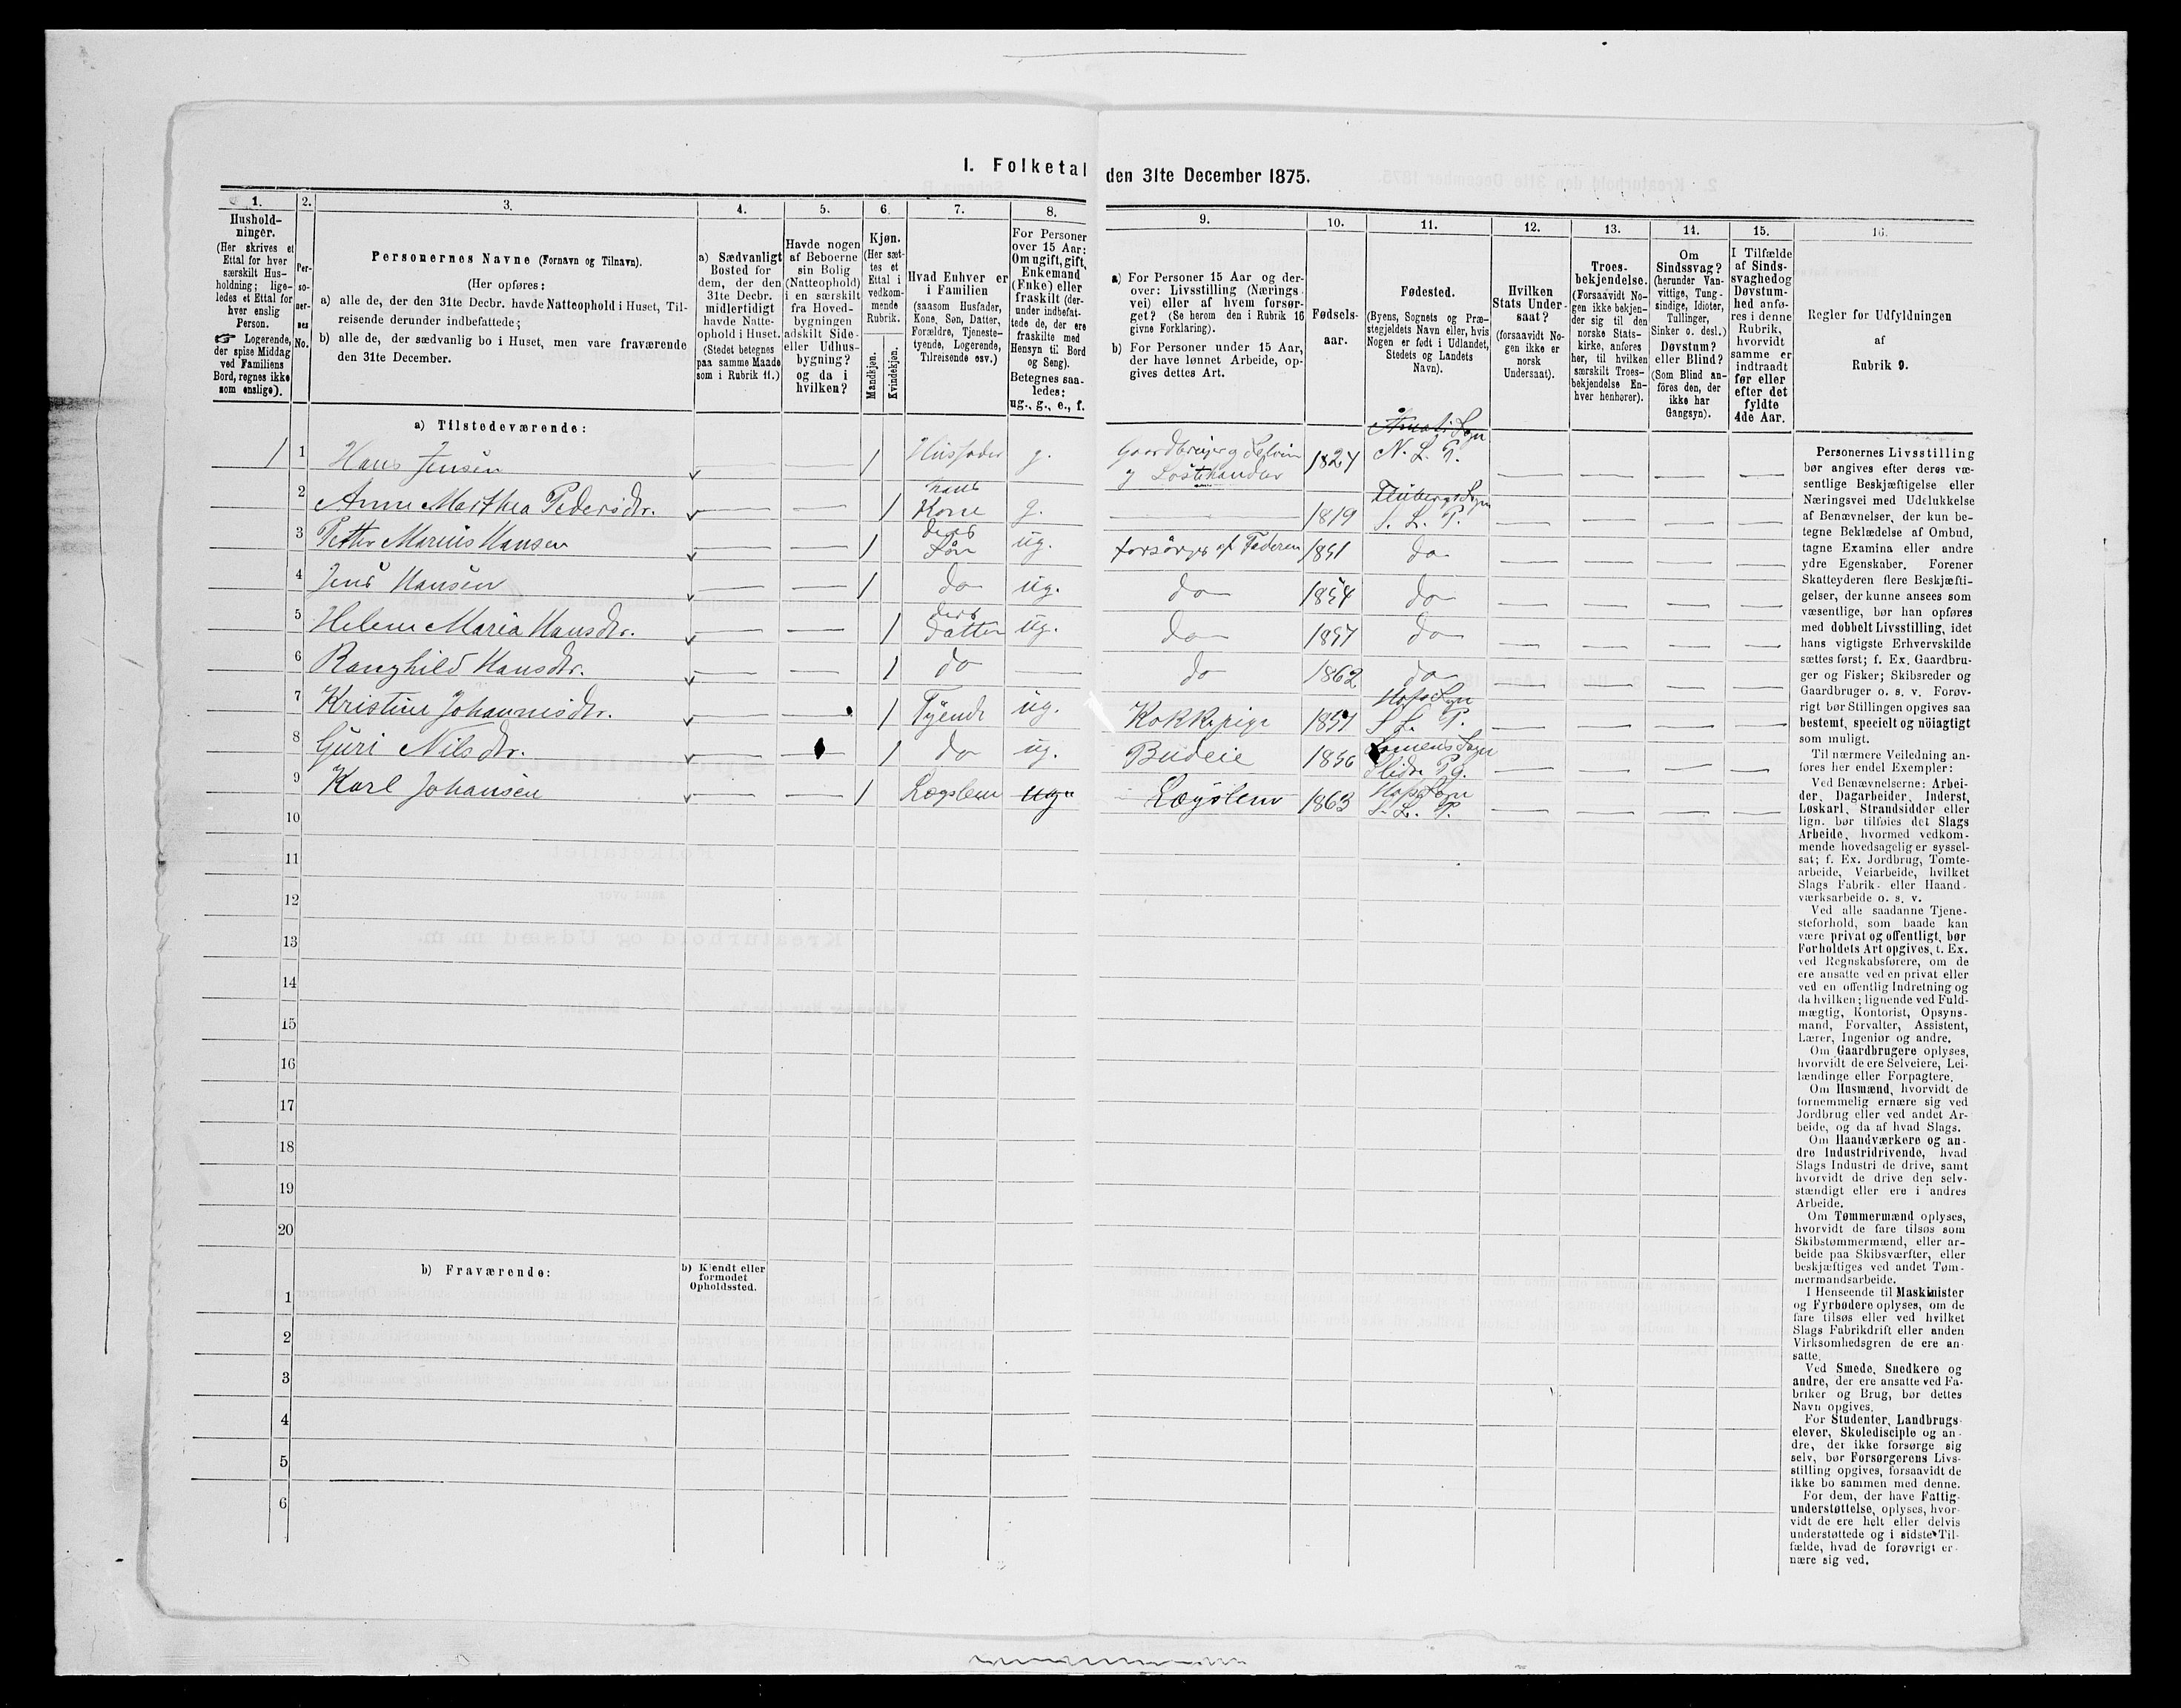 I. Folketal den 31te December 1875.
1.
2.
3.
4.
5.
6.
7.
8.
9.
10.
11.
12.
13.
14.
15.
16.
Hushold-
ninger.
(Her skrives et
Ettal for hver
særskilt Hus-
holdning; lige-
ledes et Ettal for
hver enslig
Person.
☞ Logerende,
der spise Middag
ved Familiens
Bord, regnes ikke
som enslige).
Per-
so-
ner-
nes
No.
Personernes Navne (Fornavn og Tilnavn).
(Her opføres:
a) alle de, der den 31te Decbr. havde Natteophold i Huset, Til-
reisende derunder indbefattede;
b) alle de, der sædvanlig bo i Huset, men vare fraværende
den 31te December.
a) Sædvanligt
Bosted for
dem, der den
31te Decbr.
midlertidigt
havde Natte-
ophold i Huset.
(Stedet betegnes
paa samme Maade
som i Rubrik 11.)
Havde nogen
af Beboerne
sin Bolig
(Natteophold)
i en særskilt
fra Hoved-
bygningen
adskilt Side-
eller Udhus-
bygning?
og da i
hvilken?
Kjøn.
(Her sæt-
tes et
Ettal i
vedkom-
mende
Rubrik.
Mandkjøn.
Kvindekjøn.
Hvad Enhver er
i Familien
(saasom Husfader,
Kone, Søn, Datter,
Forældre, Tjeneste-
tyende, Logerende,
Tilreisende osv.)
For Personer
over 15 Aar:
Om ugift, gift,
Enkemand
(Enke) eller
fraskilt (der-
under indbefat-
tede de, der ere
fraskilte med
Hensyn til Bord
og Seng).
Betegnes saa-
ledes:
ug., g., e., f.
a) For Personer 15 Aar og der-
over: Livsstilling (Nærings-
vei) eller af hvem forsør-
get? (Se herom den i Rubrik 16
givne Forklaring).
b) For Personer under 15 Aar,
der have lønnet Arbeide, op-
gives dettes Art.
Fødsels-
aar.
Fødested.
(Byens, Sognets og Præ-
stegjeldets Navn eller, hvis
Nogen er født i Udlandet,
Stedets og Landets
Navn).
Hvilken
Stats Under-
saat?
(forsaavidt No-
gen ikke er
norsk
Undersaat).
Troes-
bekjendelse.
(Forsaavidt No-
gen ikke bekjen-
der sig til den
norske Stats-
kirke, anføres
her, til hvilken
særskilt Troes-
bekjendelse En-
hver henhører).
Om
Sindssvag?
(herunder Van-
vittige, Tung-
sindige, Idioter,
Tullinger,
Sinker o. desl.)
Døvstum?
eller Blind?
(Som Blind an-
føres den, der
ikke har
Gangsyn).
I Tilfælde
af Sinds-
svaghed og
Døvstum-
hed anfø-
res i denne
Rubrik,
hvorvidt
samme er
indtraadt
før eller
efter det
fyldte
4de Aar.
Regler for Udfyldningen
af
Rubrik 9.
a) Tilstedeværende:
1 1 Hans Jensen — — 1 Husfader g. Gaardbruger g Selveier 1824 N. L. P.
g Løstehandler
2 Anne Marthea Pedersdtr. — — 1 hans Kone g. — 1819 S. L. P.
3 Petter Marius Hansen — — 1 deres Søn ug. forsørges af Faderen 1851 do
4 Jens Hansen — — 1 do ug. do 1854 do
5 Helene Maria Hansdtr. — — 1 deres Datter ug. do 1857 do
6 Ranghild Hansdtr. — — 1 do — do 1862 do
7 Kristine Johannesdtr. — — 1 Tyende ug. Kokkepige 1851 Hofs Sogn S. L. P.
8 Guri Nilsdtr. — — 1 do ug. Budeie 1856 Lomens Sogn Slidre Pg.
9 Karl Johansen — — 1 Lægslem Lægslem 1863 Hofs Sogn S. L. P.
10
11
12
13
14
15
16
17
18
19
20
b) Fraværende:
b) Kjendt eller
formodet
Opholdssted.
1
2
3
4
5
6
Personernes Livsstilling
bør angives efter deres væ-
sentlige Beskjæftigelse eller
Næringsvei med Udelukkelse
af Benævnelser, der kun be-
tegne Beklædelse af Ombud,
tagne Examina eller andre
ydre Egenskaber. Forener
Skatteyderen flere Beskjæfti-
gelser, der kunne ansees som
væsentlige, bør han opføres
med dobbelt Livsstilling, idet
hans vigtigste Erhvervskilde
sættes først; f. Ex. Gaardbru-
ger og Fisker; Skibsreder og
Gaardbruger o. s. v. Forøv-
rigt bør Stillingen opgives saa
bestemt, specielt og nöiagtigt
som muligt.
Til nærmere Veiledning an-
føres her endel Exempler:
Ved Benævnelserne: Arbei-
der, Dagarbeider, Inderst,
Løskarl, Strandsidder eller
lign. bør tilføies det Slags
Arbeide, hvormed vedkom-
mende hovedsagelig er syssel-
sat; f. Ex. Jordbrug, Tomte-
arbeide, Veiarbeide, hvilket
Slags Fabrik- eller Haand-
værksarbeide o. s. v.
Ved alle saadanne Tjene-
steforhold, som baade kan
være privat og offentligt, bør
Forholdets Art opgives, t. Ex.
ved Regnskabsførere, om de
ere ansatte ved en privat eller
ved en offentlig Indretning og
da hvilken; lignende ved Fuld-
mægtig, Kontorist, Opsyns-
mand, Forvalter, Assistent,
Lærer, Ingeniør og andre.
Om Gaardbrugere oplyses,
hvorvidt de ere Selveiere, Lei-
lændinge eller Forpagtere.
Om Husmænd, hvorvidt de
fornemmelig ernære sig ved
Jordbrug eller ved andet Ar-
beide, og da af hvad Slags.
Om Haandværkere og an-
dre Industridrivende, hvad
Slags Industri de drive, samt
hvorvidt de drive den selv-
stændigt eller ere i andres
Arbeide.
Om Tømmermænd oplyses,
hvorvidt de fare tilsøs som
Skibstømmermænd, eller ar-
beide paa Skibsværfter, eller
beskjæftiges ved andet Tøm-
mermandsarbeide.
I Henseende til Maskinister
og Fyrbødere oplyses, om de
fare tilsøs eller ved hvilket
Slags Fabrikdrift eller anden
Virksomhedsgren de ere an-
satte.
Ved Smede, Snedkere og
andre, der ere ansatte ved Fa-
briker og Brug, bør dettes
Navn opgives.
For Studenter, Landbrugs-
elever, Skoledisciple og an-
dre, der ikke forsørge sig
selv, bør Forsørgerens Livs-
stilling opgives, forsaavidt de
ikke bo sammen med denne.
For dem, der have Fattig-
understøttelse, oplyses, hvor-
vidt de ere helt eller delvis
understøttede og i sidste Til-
fælde, hvad de forøvrigt er-
nære sig ved.